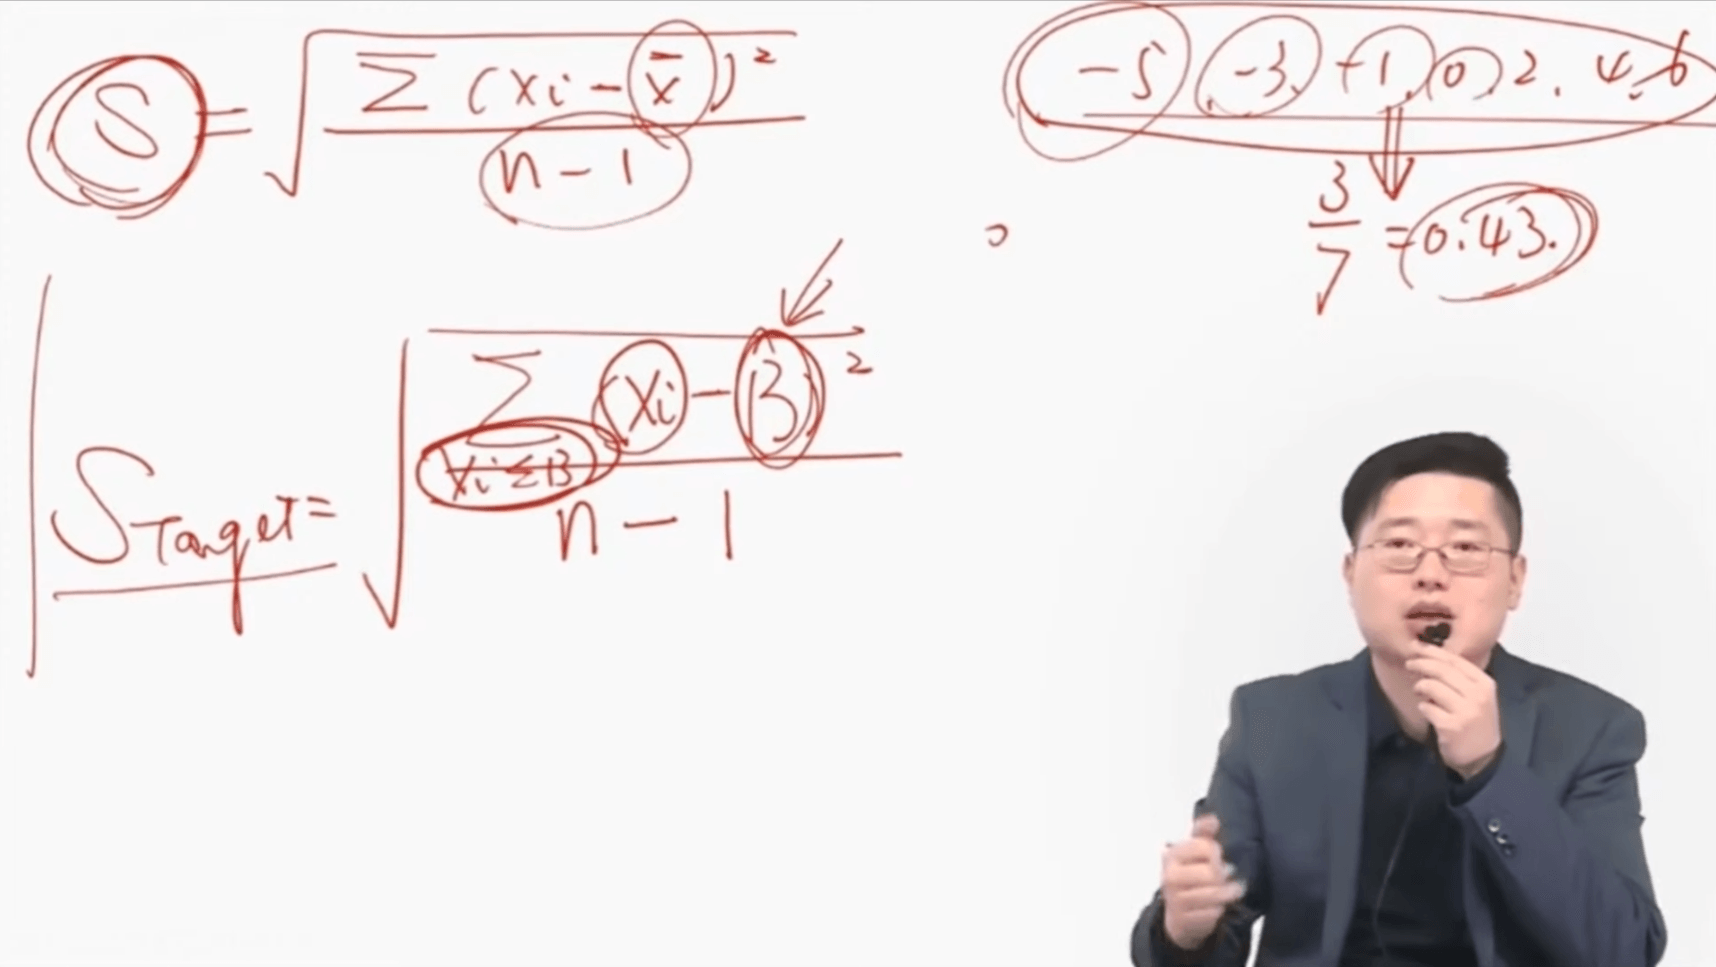 S = √(Σ(xi - x̄)² / (n - 1))
-5, -3, +1, 0, 2, 4, 6
3/7 = 0.43
S Target = √(Σ xi≤B (xi - B)² / (n - 1))